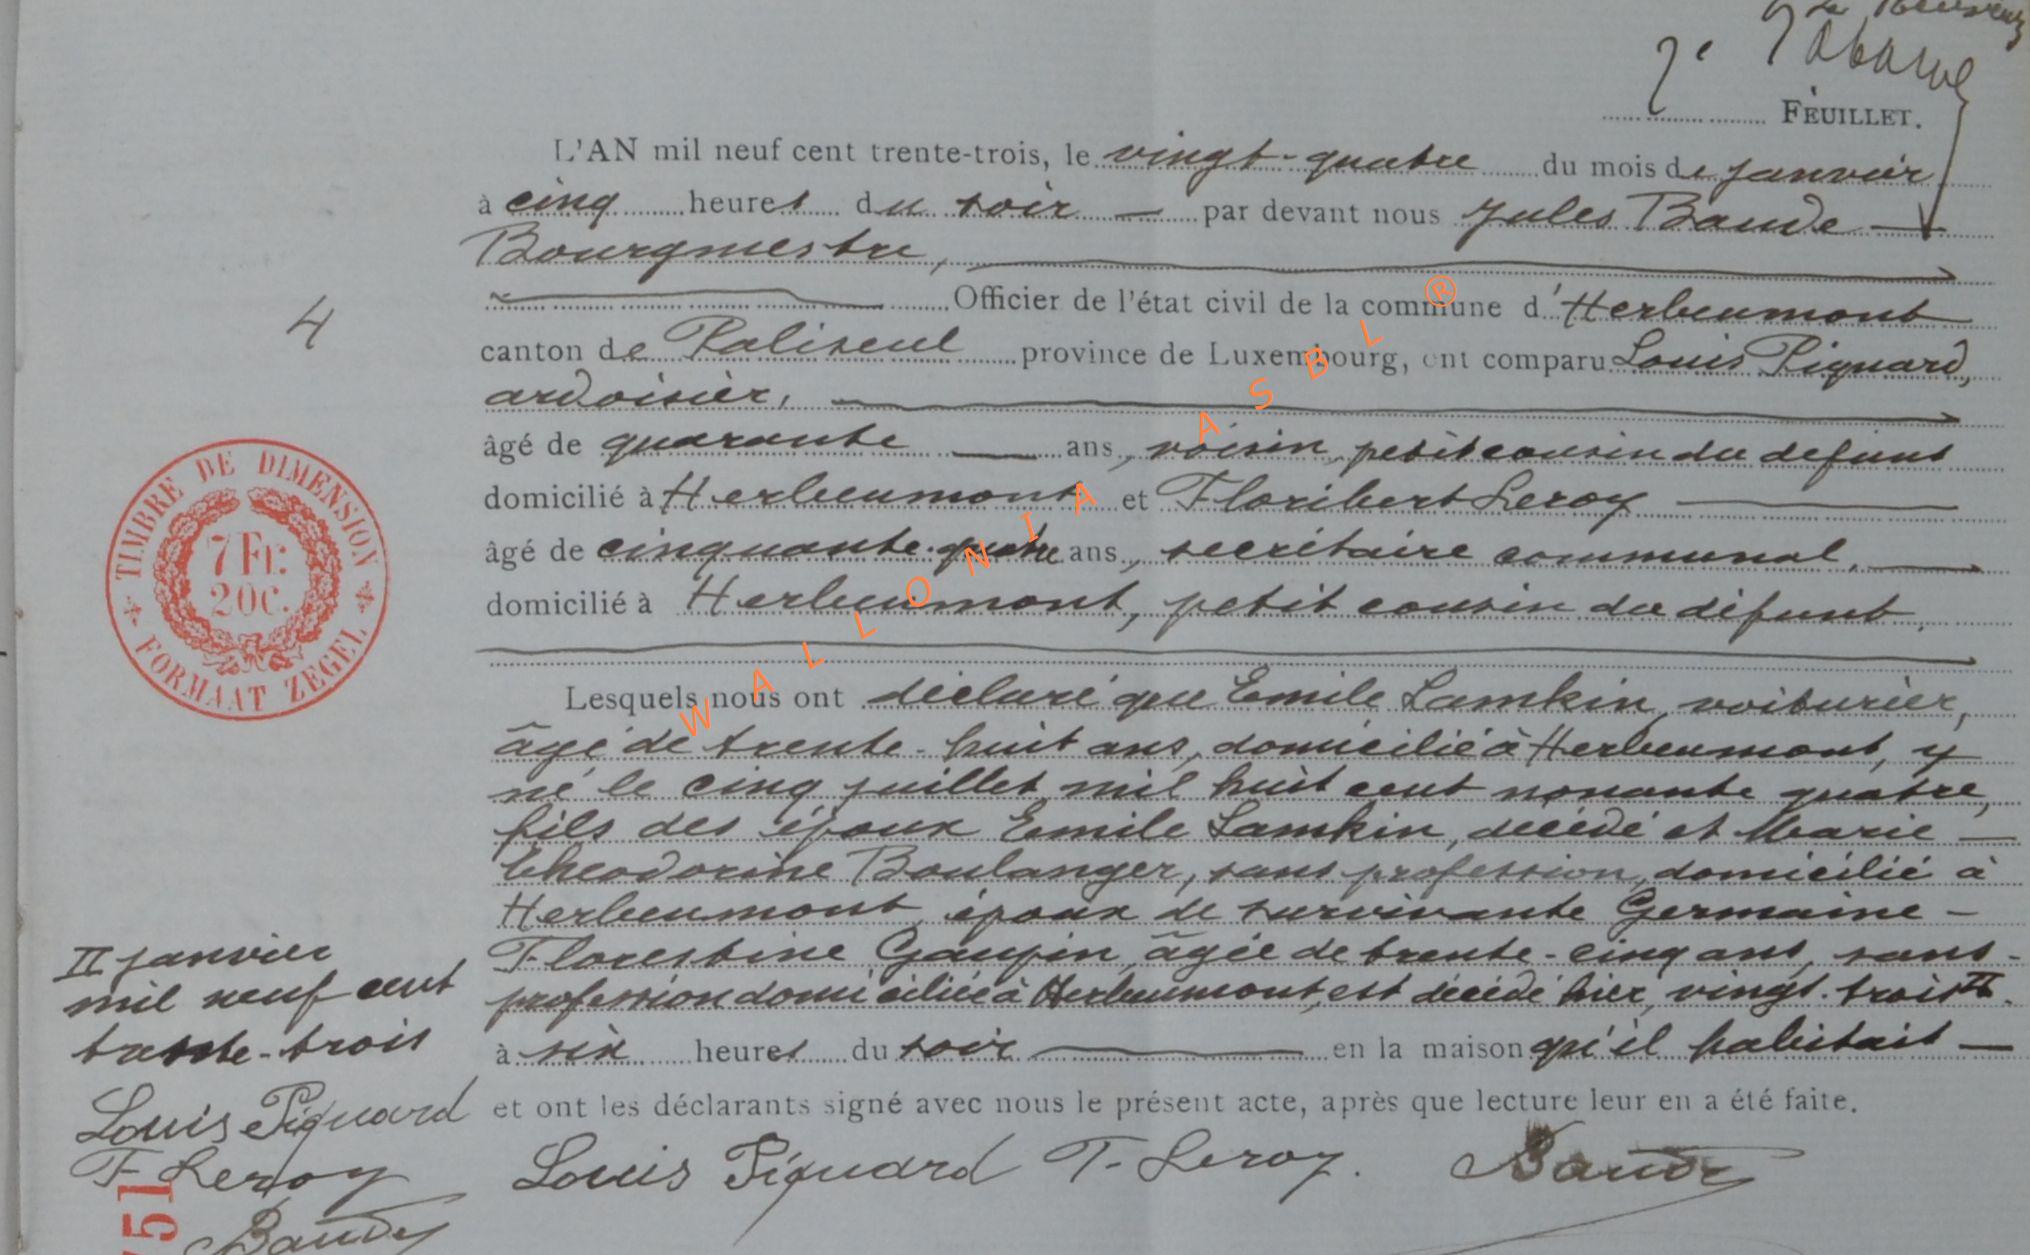 2e
FEUILLET.
L'AN mil neuf cent trente-trois, le vingt-quatre du mois de janvier
à cinq heures du soir — par devant nous Jules Baude —
Bourgmestre,
Officier de l'état civil de la commune d'Herbeumont
canton de Paliseul province de Luxembourg, ont comparu Louis Piquard,
ardoisier,
âgé de quarante ans, voisin, petit cousin du defunt
domicilié à Herbeumont et Floribert Leroy
âgé de cinquante-quatre ans, secrétaire communal,
domicilié à Herbeumont, petit cousin du défunt.
Lesquels nous ont déclaré que Emile Lamkin, voiturier,
âgé de trente-huit ans, domicilié à Herbeumont, y
né le cinq juillet mil huit cent nonante quatre,
fils des époux Emile Lamkin, décédé et Marie —
Théodorine Boulanger, sans profession, domicilié à
Herbeumont, époux de survivante Germaine -
Florestine Gaupin, âgée de trente-cinq ans, sans -
profession domiciliée à Herbeumont, est décédé hier, vingt-trois II.
à six heures du soir en la maison qu'il habitait —
et ont les déclarants signé avec nous le présent acte, après que lecture leur en a été faite.
Louis Piquard F. Leroy. Baude
4
TIMBRE DE DIMENSION
7 Fr.
20C.
FORMAAT ZEGEL
II janvier
mil neuf cent
trente-trois
Louis Piquard
F Leroy
Baude
751
WALLONIA ASBL ®